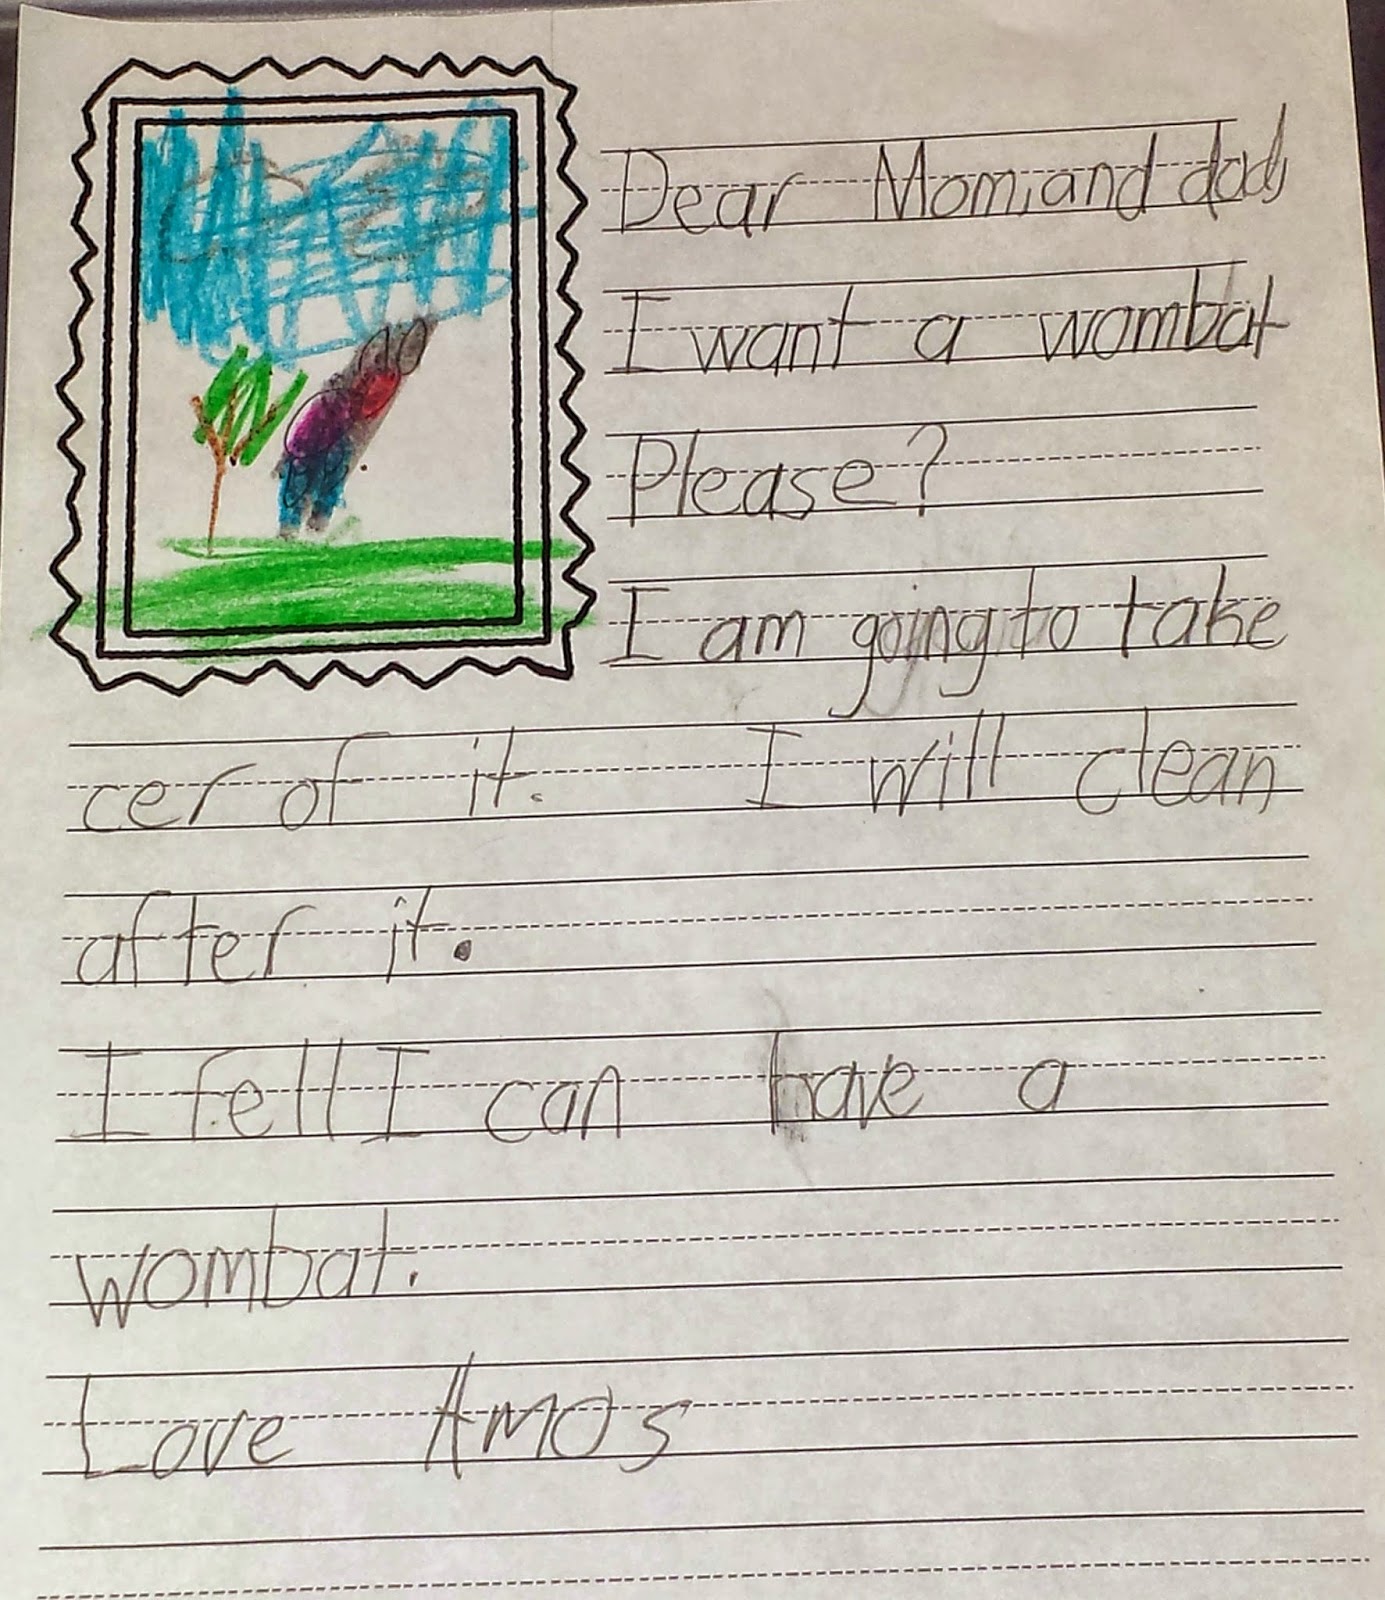 Dear Mom, and dad,
I want a wombat
Please?
I am going to take
cer of it. I will clean
after it.
I fell I can have a
wombat.
Love Amos